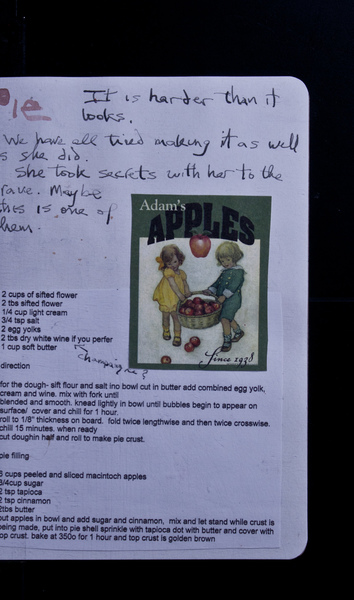 It is harder than it
looks.
We have all tried making it as well
she did.
She took secrets with her to the
rave. Maybe
this is one of
hem.
Adam's
APPLES
Since 1928
2 cups of sifted flower
2 tbs sifted flower
1/4 cup light cream
3/4 tsp salt
2 egg yolks
2 tbs dry white wine if you perfer
1 cup soft butter
Champaigne?
direction
for the dough- sift flour and salt ino bowl cut in butter add combined egg yolk,
cream and wine. mix with fork until
blended and smooth. knead lightly in bowl until bubbles begin to appear on
surface/ cover and chill for 1 hour.
roll to 1/8" thickness on board. fold twice lengthwise and then twice crosswise.
chill 15 minutes. when ready
cut doughin half and roll to make pie crust.
pie filling
6 cups peeled and sliced macintosh apples
3/4cup sugar
2 tsp tapioca
2 tsp cinnamon
2tbs butter
put apples in bowl and add sugar and cinnamon, mix and let stand while crust is
being made, put into pie shell sprinkle with tapioca dot with butter and cover with
top crust. bake at 350o for 1 hour and top crust is golden brown